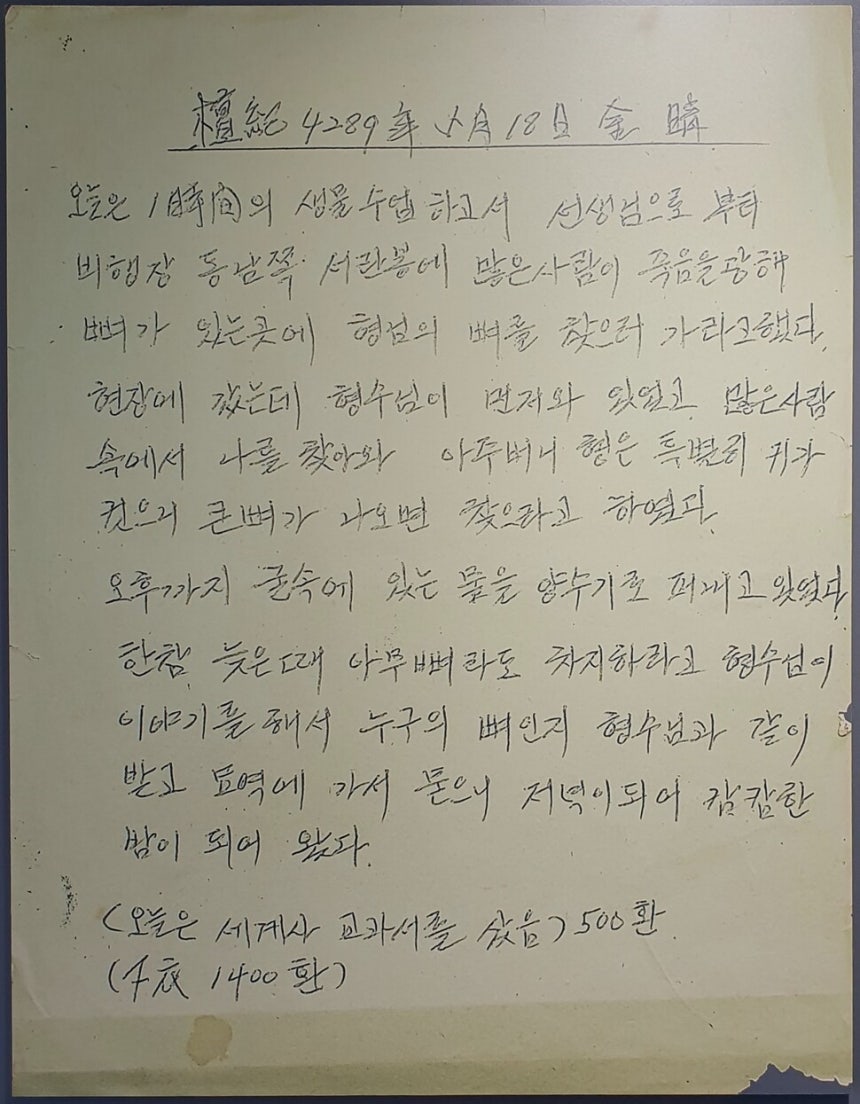 檀紀 4289年 5月 18日 金 晴
오늘은 1時間의 생물수업 하고서 선생님으로 부터
비행장 동남쪽 서란봉에 많은사람이 죽음을광해
뼈가 있는곳에 형님의 뼈를 찾으러 가라고했다.
현장에 갔는데 형수님이 먼저와 있었고 많은사람
속에서 나를 찾아와 아주버니 형은 특별히 귀가
컷으니 큰뼈가 나오면 찾으라고 하였다.
오후까지 굴속에 있는 물을 양수기로 퍼내고 있었다
한참 늦은때 아무뼈라도 차지하라고 형수님이
이야기를 해서 누구의 뼈인지 형수님과 같이
받고 묘역에 가서 묻으니 저녁이되어 캄캄한
밤이 되어 왔다.
(오늘은 세계사 교과서를 샀음) 500환
(下衣 1400환)